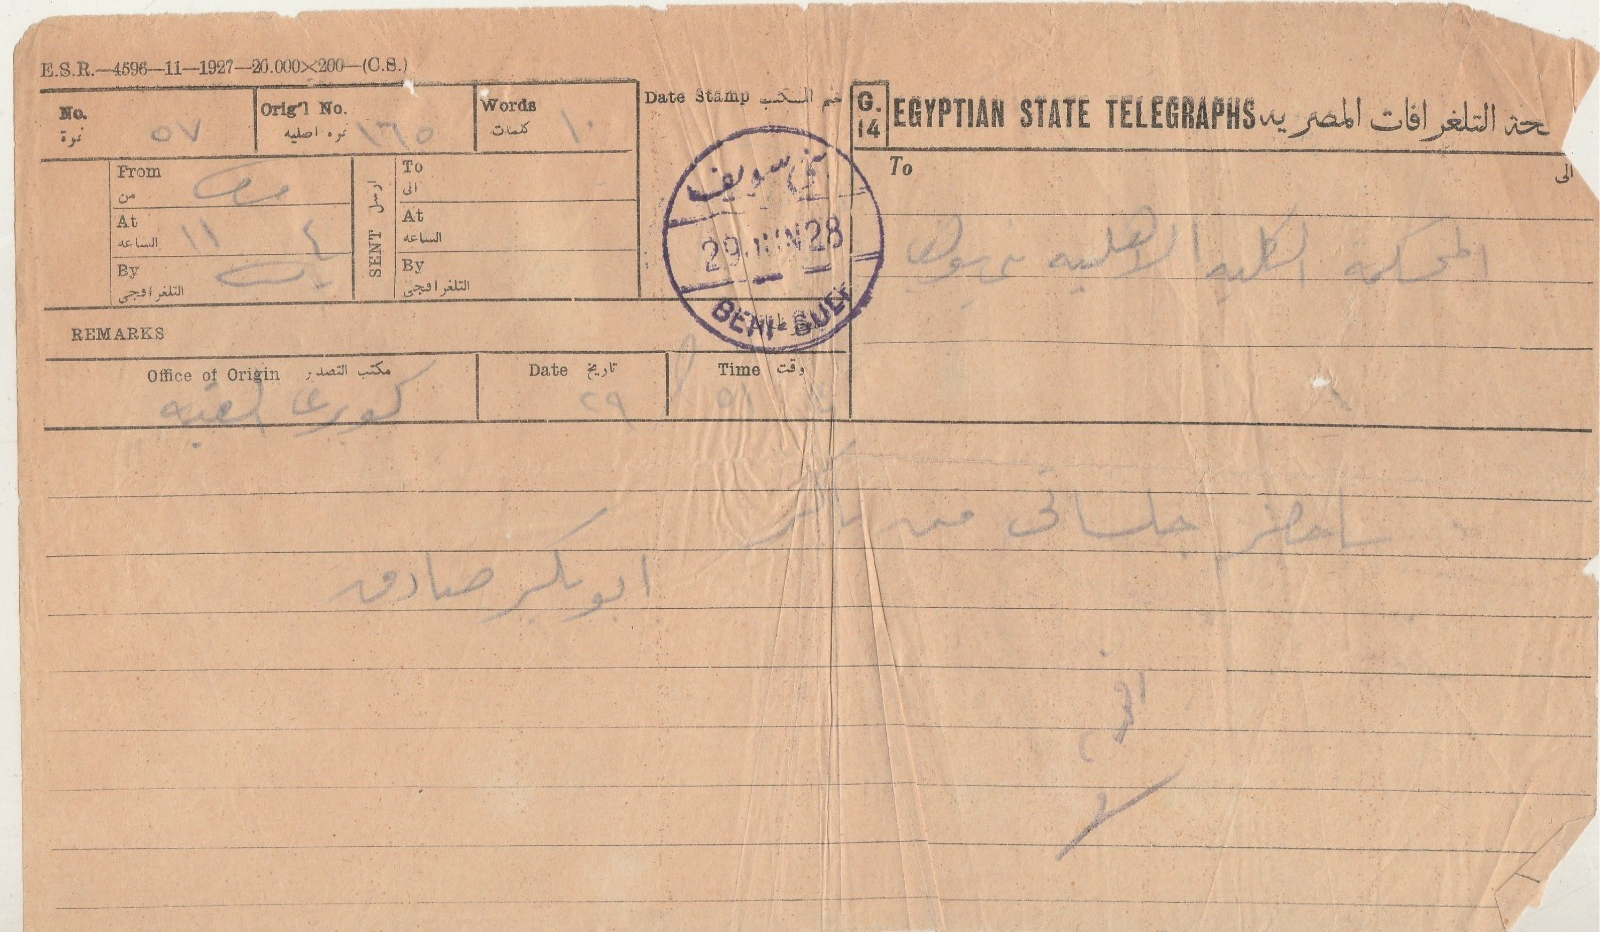 E.S.R.—4596—11—1927—20.000×200—(C.S.)
No. نمرة ٥٧
Orig'l No. نمره اصليه ١٦٥
Words كلمات ١٠
Date Stamp ختم المكتب
G. 14
EGYPTIAN STATE TELEGRAPHS حة التلغرافات المصريه
From من
At الساعه ١١
By التلغرافجى
SENT ارسل
To الى
At الساعه
By التلغرافجى
بنى سويف
29.JUN 28
BENI-SUEF
To الى
المحكمه الكليه الاهليه بنى سويف
REMARKS
Office of Origin مكتب التصدير
Date تاريخ ٢٩
Time وقت
ساحضر جلساتى من باكر
ابو بكر صادق